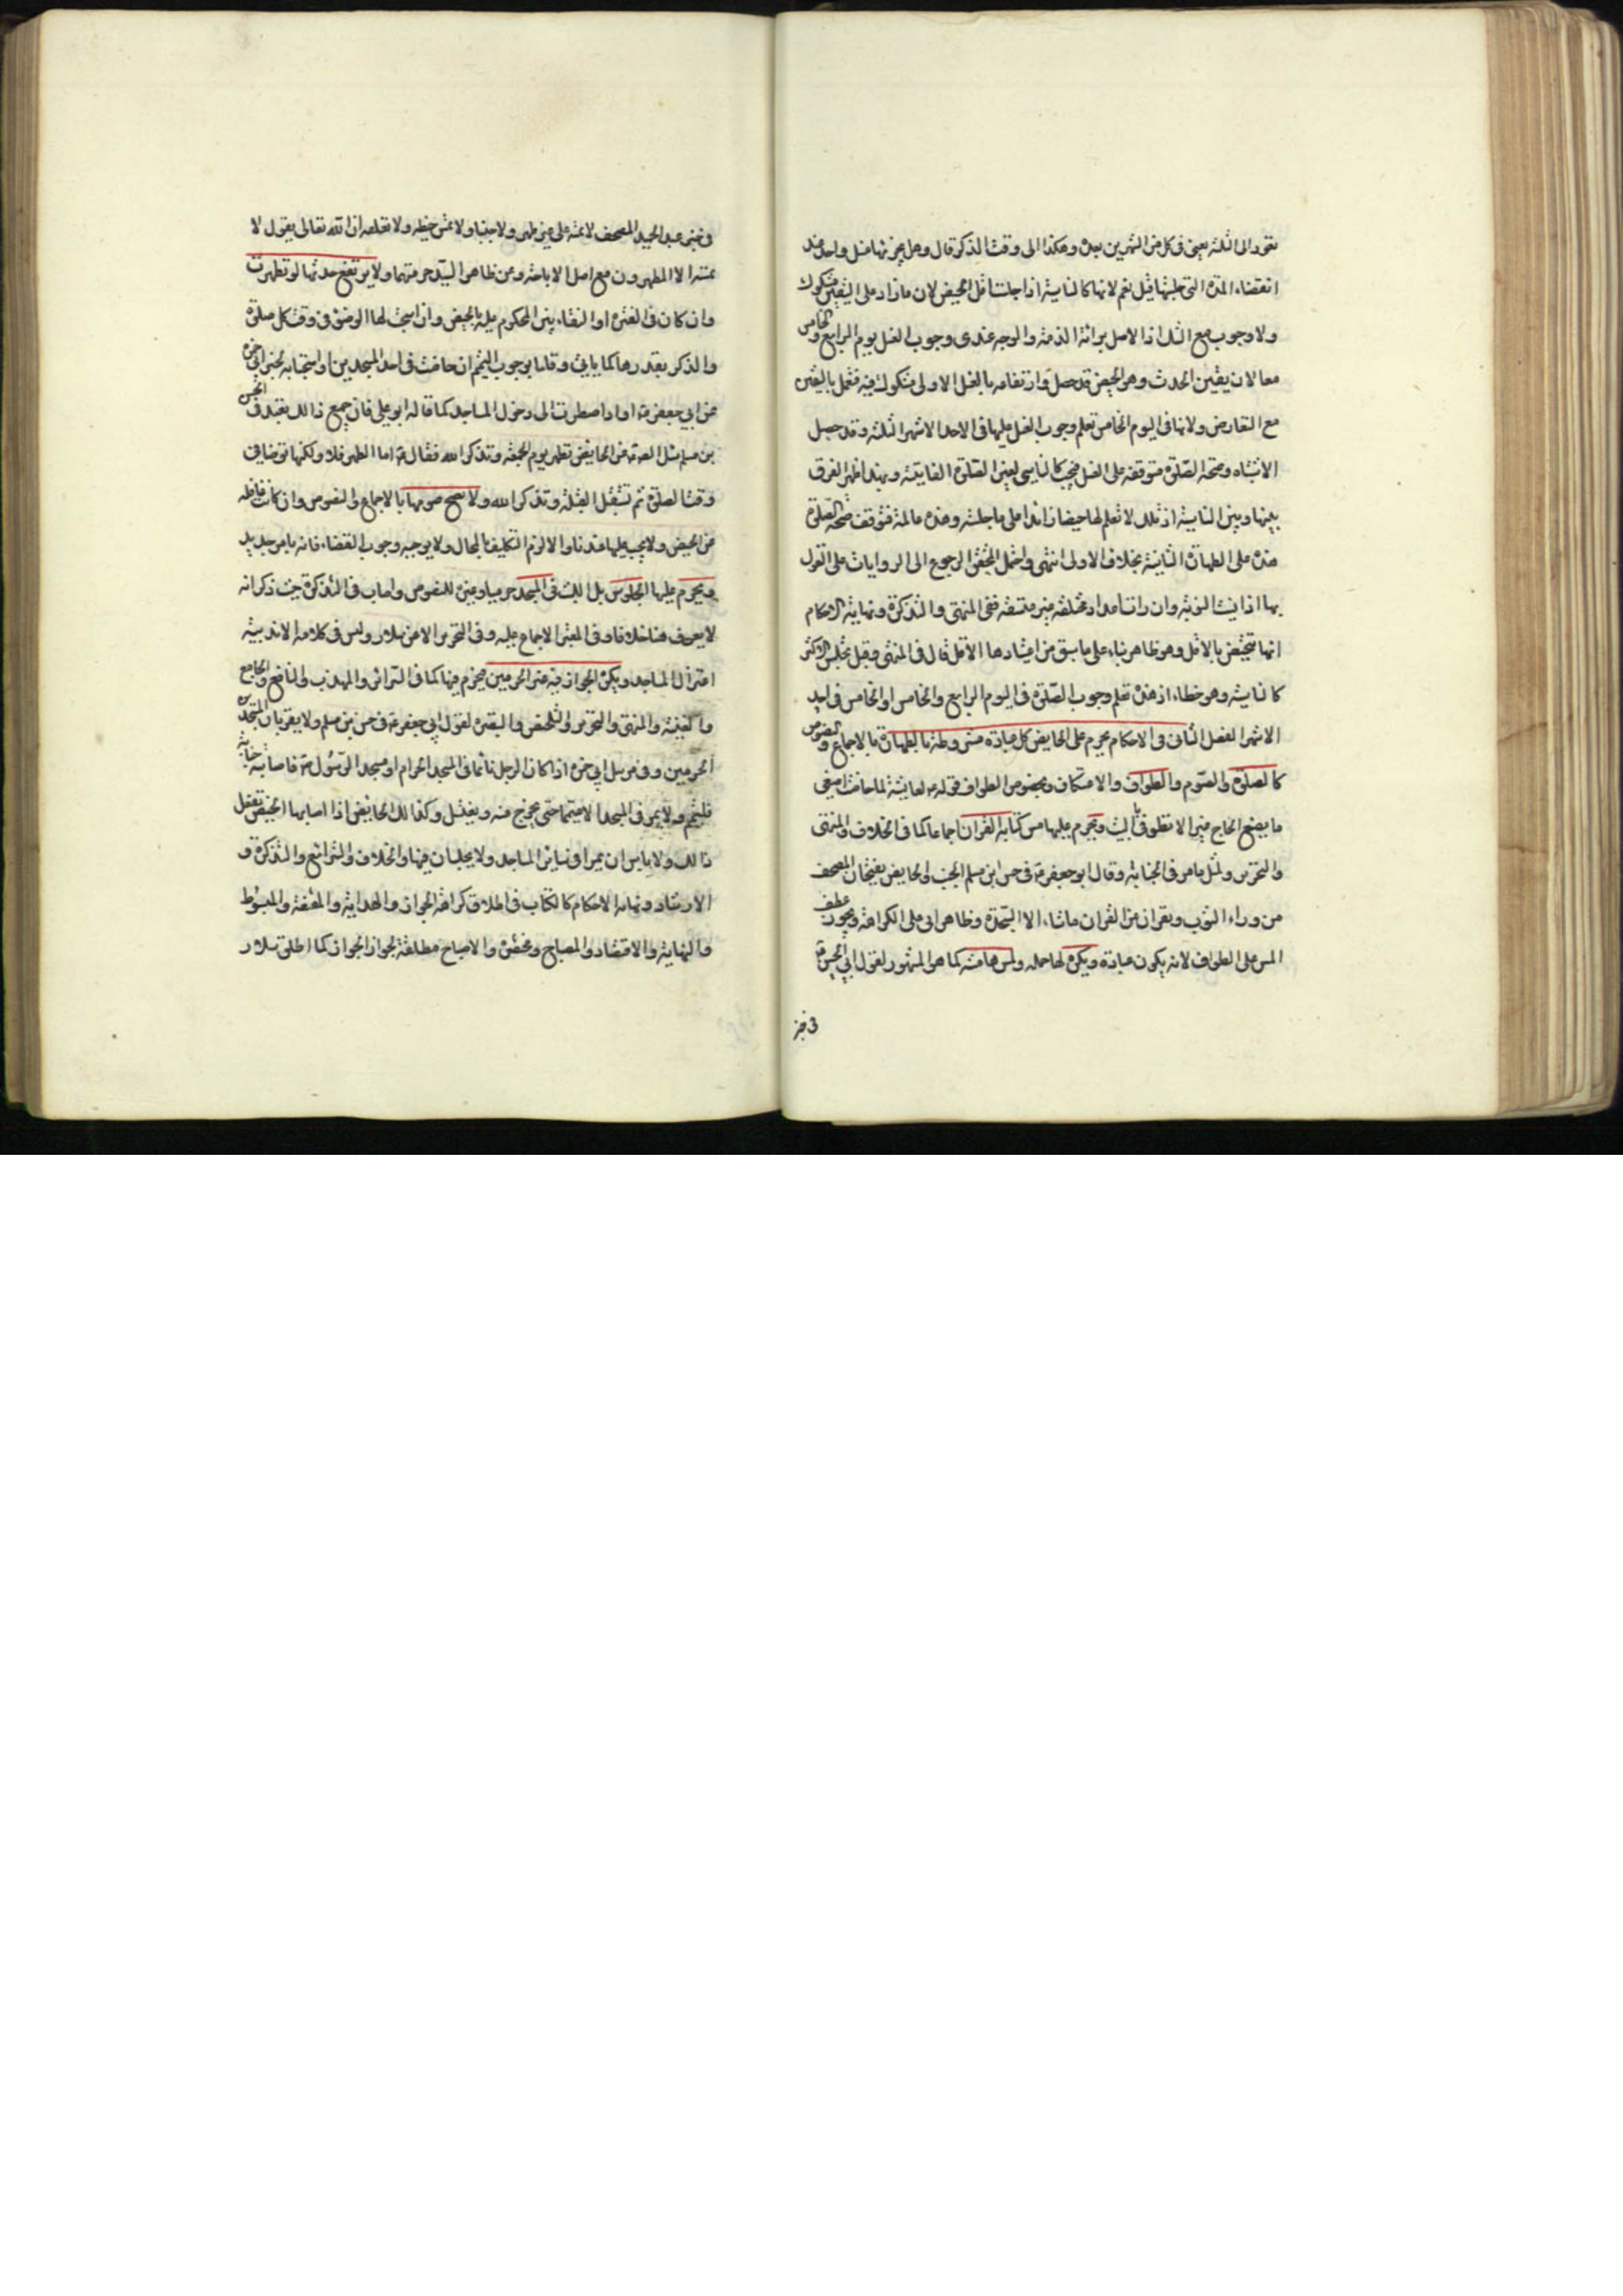 تعود الى الثلثة يعني في كل من الشهرين بعده وهكذا الى وقت الذكر قال وهل يجزيها غسل واحد عند
انقضاء المدة التي جلستها قيل نعم لانها كالناسية اذا جلست اقل الحيض لان ما زاد على اليقين مشكوك
ولا وجوب مع الشك اذ الاصل براءة الذمة والوجه عندي وجوب الغسل يوم الرابع والخامس
معا لان يقين الحدث وهو الحيض قد حصل وارتفاعه بالغسل الاول مشكوك فيه فتعمل باليقين
مع التعارض ولانها في اليوم الخامس تعلم وجوب الغسل عليها في احد الاشهر الثلثة وقد حصل
الاشتباه وصحة الصلوة متوقفة على الغسل فيجب كالناسي لعين الصلوة الفايتة وبهذا ظهر الفرق
بينها وبين الناسية اذ تلك لا تعلم لها حيضا زائدا على ما جلسته وهذه عالمة فتوقف صحة الصلوة
هذه على الطهارة الثانية بخلاف الاولى انتهى واحتمل المحقق الرجوع الى الروايات على القول
بها اذا نسيت النوبة وان رات اعدادا مختلفة غير متسقة ففي المنتهى والتذكرة ونهاية الاحكام
انها تتحيض بالاقل وهو ظاهر بناء على ما سبق من اعتبارها الاقل قال في المنتهى وقيل تجلس الاكثر
كالناسية وهو خطاء اذ هذه تعلم وجوب الصلوة في اليوم الرابع والخامس او الخامس في احد
الاشهر الفصل الثاني في الاحكام يحرم على الحايض كل عبادة مشروطة بالطهارة بالاجماع والنصوص
كالصلوة والصوم والطواف والاعتكاف وبخصوص الطواف قوله لعايشة لما حاضت اصنعي
ما يصنع الحاج غير الا تطوفي بالبيت ويحرم عليها مس كتابة القران اجماعا كما في الخلاف والمنتهى
والتحرير ولمثل ما مر في الجنابة وقال ابو جعفر في حسن ابن مسلم الجنب والحايض يفتحان المصحف
من وراء الثوب ويقران من القران ما شاءا الا السجدة وظاهر ابي علي الكراهة ويجوز عطف
المس على الطواف لانه يكون عبادة ويكره لها حمله ولمس هامشه كما هو المشهور لقول ابي الحسن
في خبر
في خبر عبد الحميد المصحف لا تمسه على غير طهر ولا جنبا ولا تمس خيطه ولا تعلقه ان الله تعالى يقول لا
يمسه الا المطهرون مع اصل الاباحة وعن ظاهر السيد حرمتهما ولا يرتفع حدثها لو تطهرت
وان كان في الفترة او النقاء بين المحكوم عليه بالحيض وان استحب لها الوضوء في وقت كل صلوة
والذكر بقدرها كما ياتي وقلنا بوجوب التيمم ان حاضت في احد المسجدين او استحبابه لخبر ابي حمزة
عن ابي جعفر او اذا اضطرت الى دخول المساجد كما قاله ابو علي فان جميع ذالك تعبد في الحسن
بن مسلم سئل الصادق عن الحايض تطهر يوم الجمعة وتذكر الله فقال اما الطهر فلا ولكنها توضا في
وقت الصلوة ثم تستقبل القبلة وتذكر الله ولا يصح صومها بالاجماع والنصوص وان كانت غافلة
من الحيض ولا يجب عليها عندنا والا لزم التكليف بالمحال ولا يوجبه وجوب القضاء فانه بامر جديد
ويحرم عليها الجلوس بل اللبث في المسجد حرميا وغيره للنصوص واصاب في التذكرة حيث ذكر انه
لا يعرف هنا خلافا وفي المعتبر الاجماع عليه وفي التحرير الا من سلار وليس في كلامه الا ندبية
اعتزال المساجد ويكره الجواز فيه غير الحرمين فيحرم فيهما كما في السرائر والمهذب والنافع والجامع
والغنية والمنتهى والتحرير والتلخيص والتبصرة لقول ابي جعفر في حسن بن مسلم ولا يقربان المسجدين
الحرمين وفي مرسل ابي حمزة اذا كان الرجل نائما في المسجد الحرام او مسجد الرسول فاصابته جنابة
فليتيمم ولا يمر في المسجد الا متيمما حتى يخرج منه ويغتسل وكذالك الحايض اذا اصابها الحيض تفعل
ذالك ولا باس ان يمرا في سائر المساجد ولا يجلسان فيها والخلاف والشرائع والتذكرة و
الارشاد ونهاية الاحكام كالكتاب في اطلاق كراهة الجواز والهداية والمقنعة والمبسوط
والنهاية والاقتصاد والمصباح ومختصره والاصباح مطلقة لجواز الجواز كما اطلق سلار